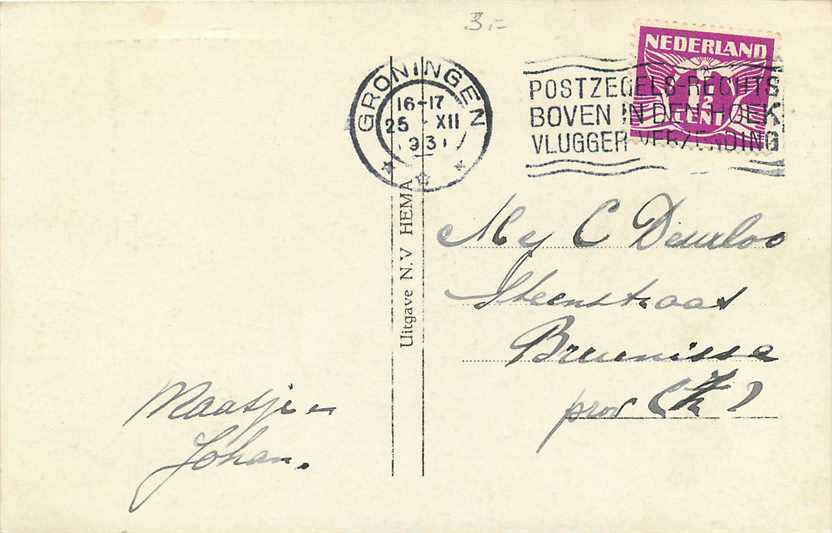 3.-
GRONINGEN
16-17
25 XII
1931
POSTZEGELS-RECHTS
BOVEN IN DEN HOEK
VLUGGER VERZENDING
NEDERLAND
1½
CENT
Uitgave N.V HEMA
Mej C Deurloo
Steenstraat
Bruinisse
prov (Z)
Maatje en
Johan.